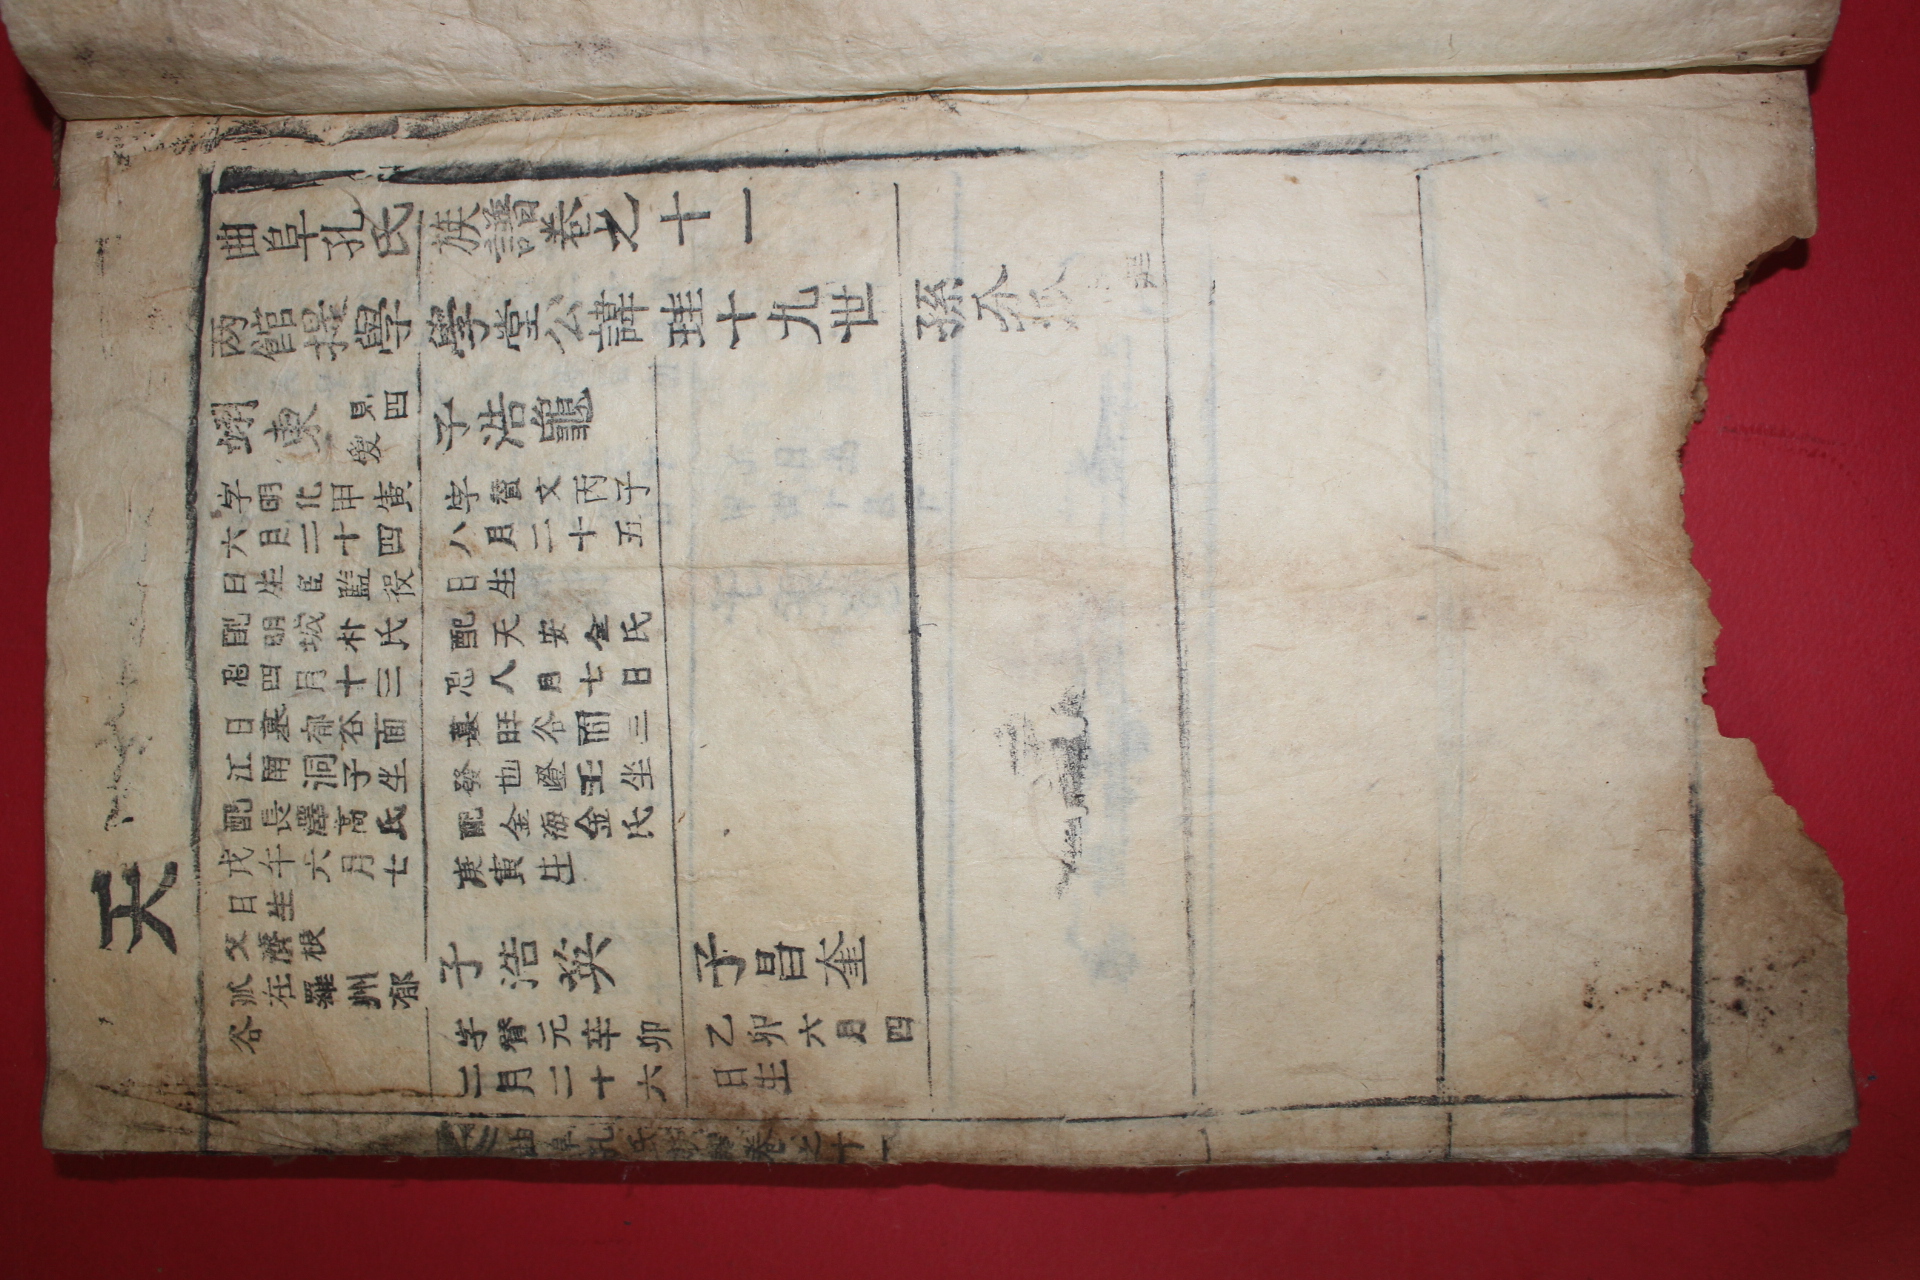 天
曲阜孔氏族譜卷之十一
兩館提學學堂公諱珪十九世孫
東
見四
字明化甲寅
六月三十四
日生官監役
配明城朴氏
忌四月十三
日墓郁谷面
江南洞子坐
配長澤高氏
戊午六月七
日生
父濟根
派在羅州郁
谷
子浩龜
字贊文丙子
八月二十五
日生
配天安全氏
忌八月七日
墓旺谷面三
發也嶝壬坐
配金海金氏
庚寅生
子浩英
字贊元辛卯
二月二十六
子昌奎
乙卯六月四
日生
曲阜孔氏族譜卷之十一